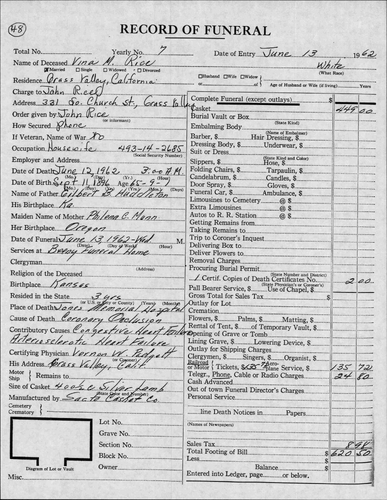 48
RECORD OF FUNERAL
Total No. Yearly No. 7 Date of Entry June 13 1962
Name of Deceased Vina M. Rice White
Married Single Widowed Divorced (What Race)
Residence Grass Valley, California Husband Wife Widow Age of Husband or Wife (if living)
Charge to John Rice
Complete Funeral (except outlays) $
Address 331 So. Church St., Grass Valley
Casket 445 00
Order given by John Rice
Burial Vault or Box
(or informant) (State Kind)
How Secured phone
Embalming Body
(Name of Embalmer)
If Veteran, Name of War No
Barber, $ Hair Dressing, $
Occupation Housewife 493-14-2685
Dressing Body, $ Underwear, $
(Social Security Number)
Suit or Dress
Employer and Address
(State Kind and Color)
Slippers, $ Hose, $
Date of Death June 12, 1962 3:00 A.M.
Folding Chairs, $ Tarpaulin, $
Candelabrum, $ Candles, $
Date of Birth Sept 11, 1896 Age 65-9-1
Door Spray, $ Gloves, $
Name of Father Gilbert B. Huddleston
Funeral Car, $ Ambulance, $
His Birthplace Ka
Limousines to Cemetery @ $
Extra Limousines @ $
Maiden Name of Mother Philena C. Mann
Autos to R. R. Station @ $
Her Birthplace Oregon
Getting Remains From
Taking Remains to
Date of Funeral June 13, 1962-Wed. M.
Trip to Coroner's Inquest
Services at Bergy Funeral Home
Delivering Box to
Clergyman
Deliver Flowers to
(Address)
Removal Charges
Religion of the Deceased
Procuring Burial Permit
(State Number and District)
Birthplace Kansas
1 Certif. Copies of Death Certificates No. 2 00
Resided in the State 3 yrs
Pall Bearer Service, $ Use of Chapel, $
Gross Total for Sales Tax $
Place of Death Jones Memorial Hospital
Outlay for Lot
Cremation
Cause of Death Coronary Occlusion
Flowers, $ Palms, $ Matting, $
Contributory Causes Congestive Heart Failure
Rental of Tent, $ of Temporary Vault, $
Opening of Grave or Tomb
Arteriosclerotic Heart Failure
Lining Grave, $ Lowering Device, $
Certifying Physician Vernon W. Padgett
Outlay for Shipping Charges
His Address Grass Valley, Calif.
Clergymen, $ Singers, $ Organist, $
Railroad or Motor Tickets, $ plane Service, $ 135 72
Motor Ship Remains to
Telegr., Phone, Cable or Radio Charges 24 80
Size of Casket Silver Lamb
Cash Advanced
(State Color and Number)
Out of town Funeral Director's Charges
Manufactured by Sacto Casket Co.
Personal Service
Cemetery
Crematory
line Death Notices in Papers
Lot No.
(Names of Newspapers)
Grave No.
Section No.
Sales Tax 8 98
Block No.
Total Footing of Bill $ 620 50
Less
Owner
Balance $
Diagram of Lot or Vault
Entered into Ledger, page or below.